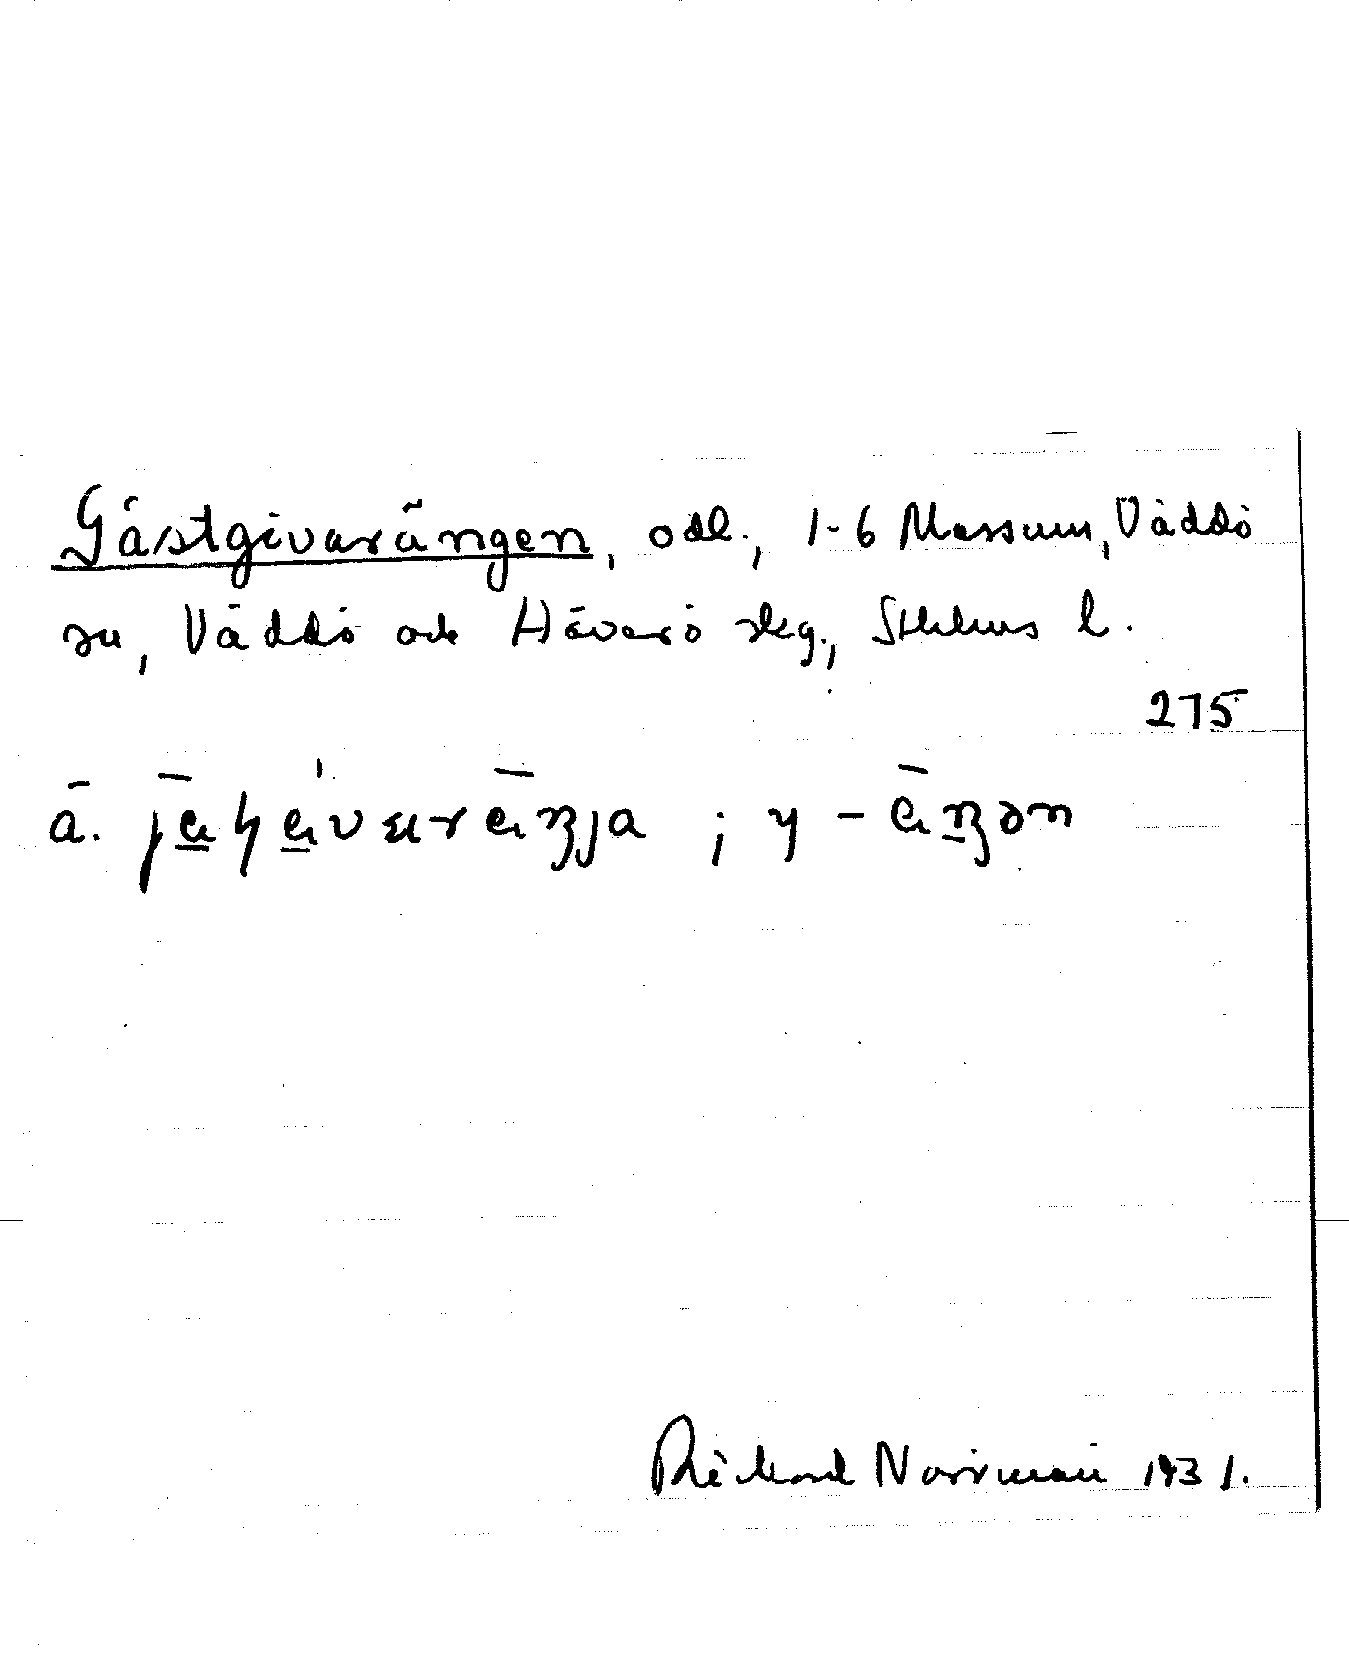 Gästgivarängen, odl., 1-6 Massum, Väddö
sn, Väddö och Häverö skg., Sthlms l.
275
ä. ; y -
Rickard Norrman 1931.